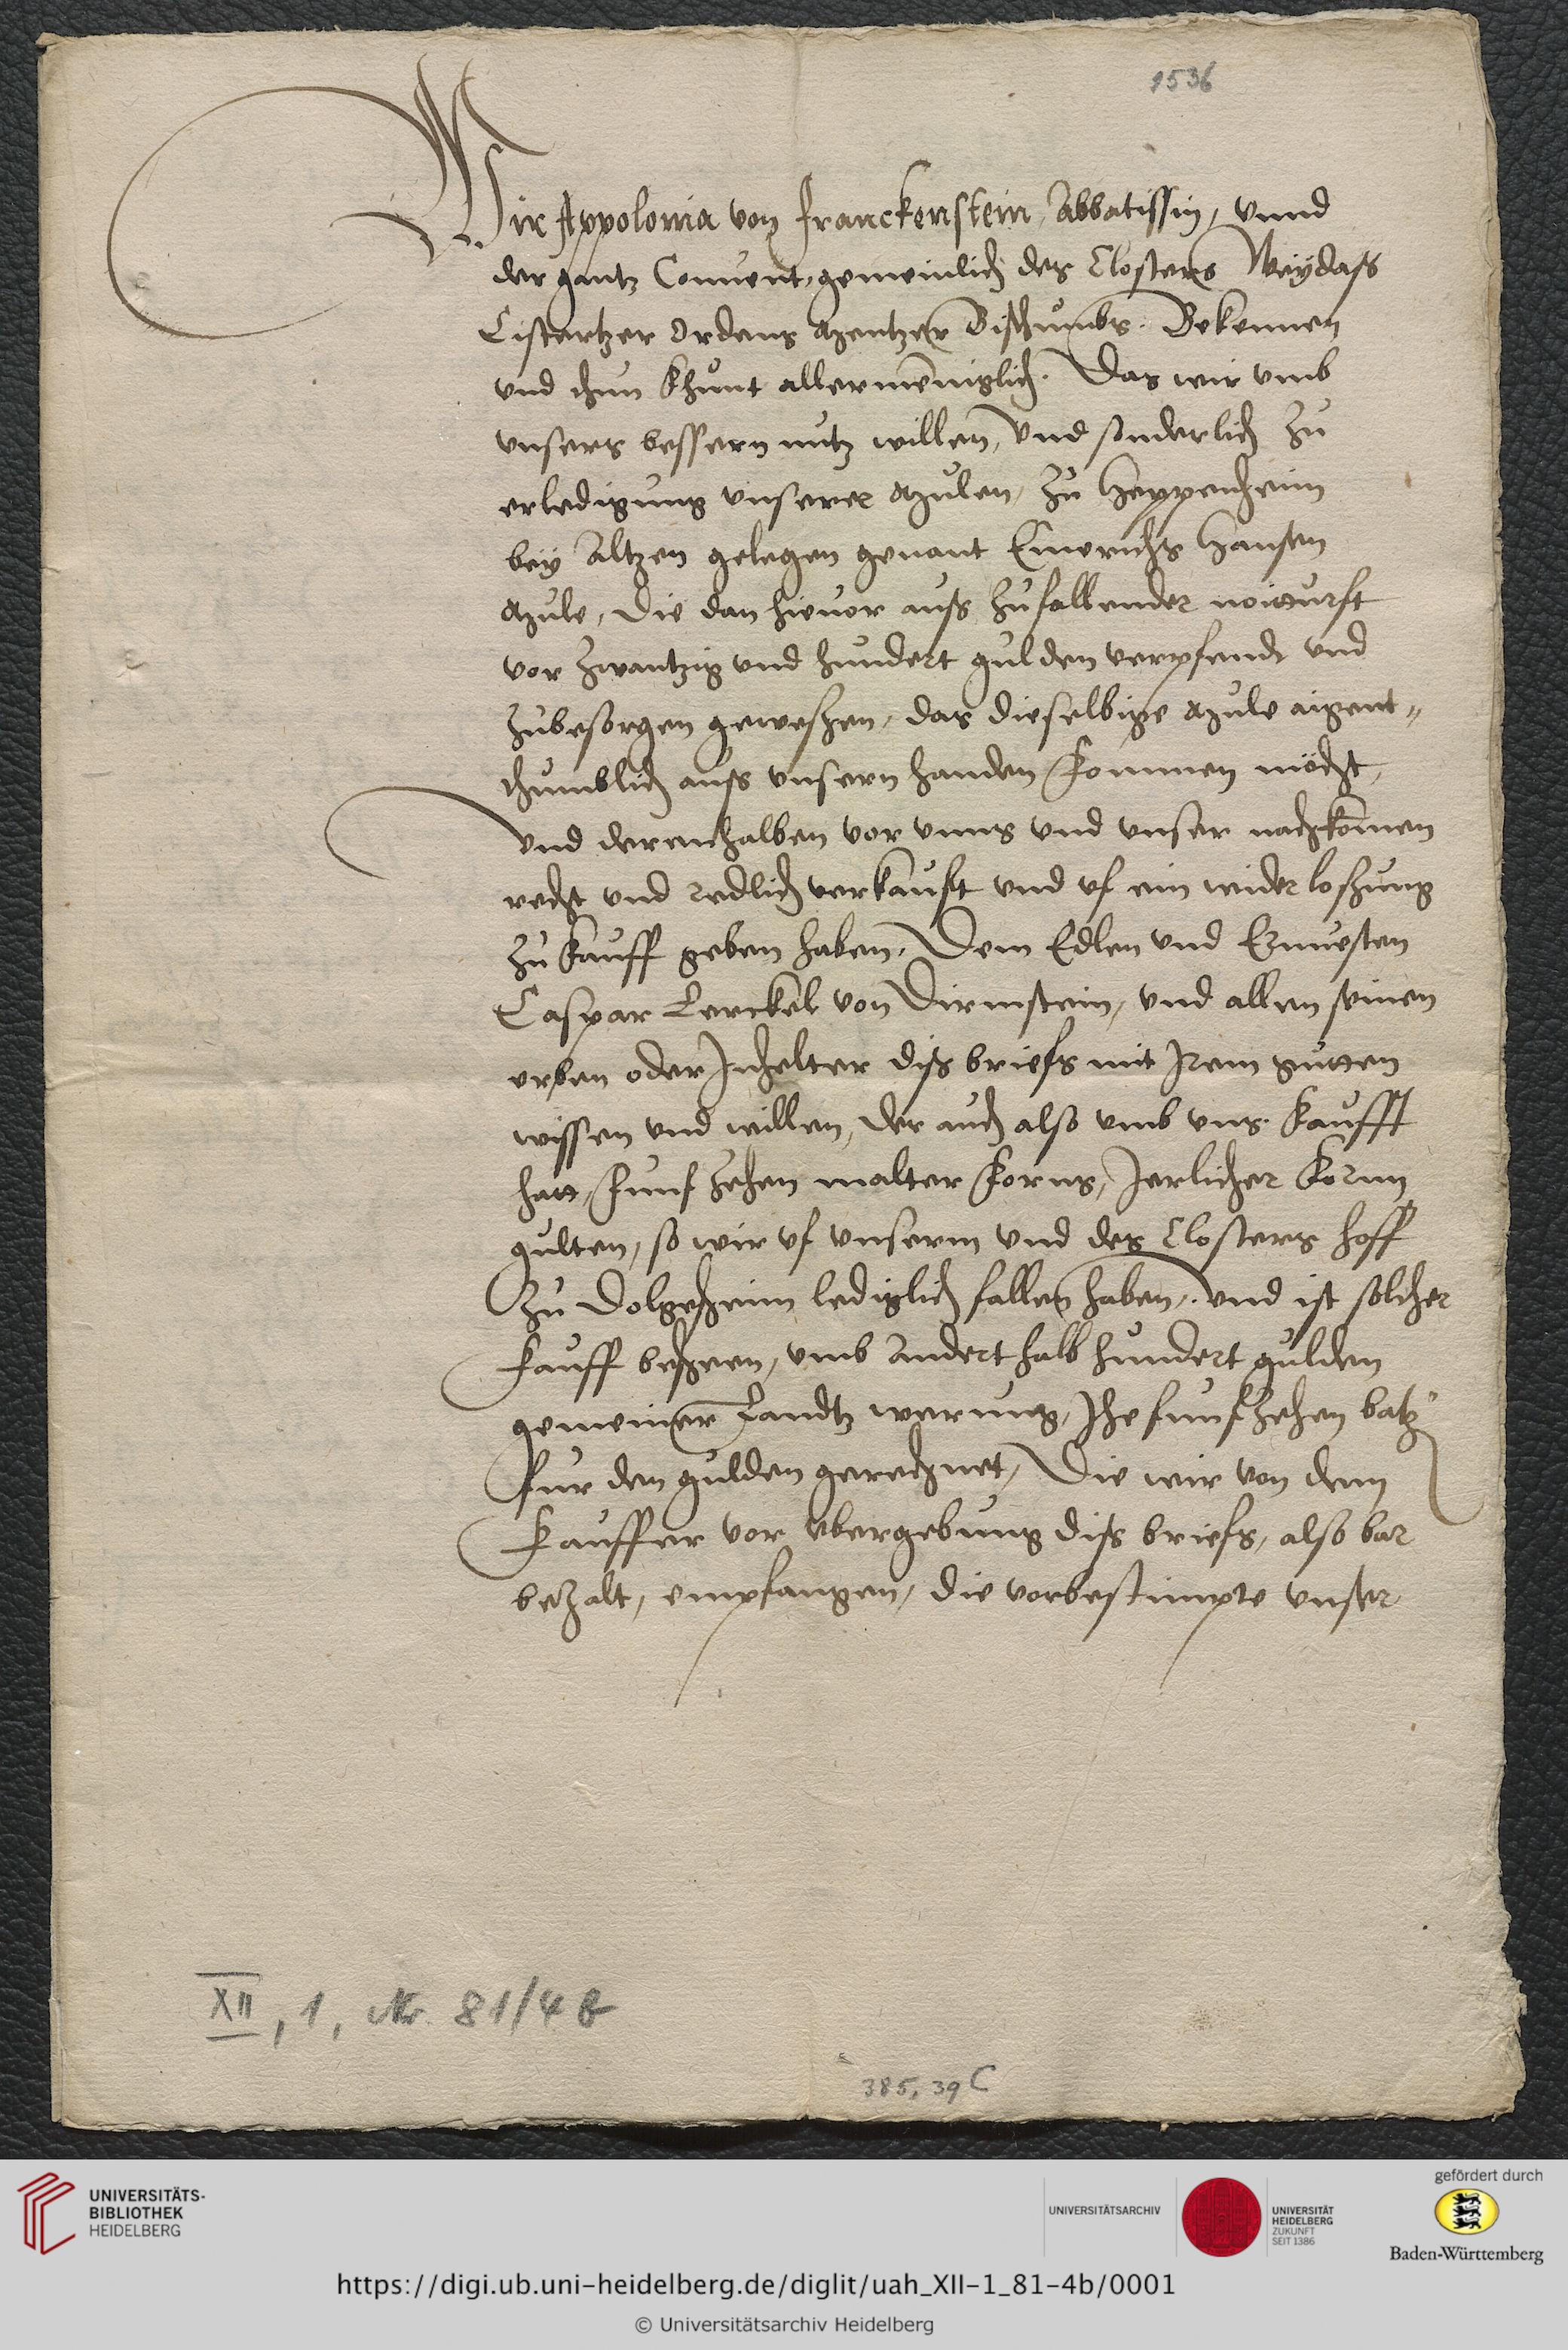 1536
Wir Appolonia von Franckenstein, Abbatissin, vnnd
der gantz Conuent, gemeinlich des Closters Weydass
Cistertzer Ordens Mentzer Bisthumbs. Bekennen
vnd thun khunt allermeniglich. Das wir vmb
vnsers bessern nutz willen, vnd sonderlich zu
erledigung vnserer Mulen, zu Heppenheim
bey Altzen gelegen genant Emerichs Hansen
Mule, die dan hieuor auss zufallender notturft
vor zwantzig vnd hundert gulden verpfendt vnd
zubesorgen geweszen, das dieselbige Mule aigent„
thumblich auss vnsern handen kommen möcht,
Vnd derenthalben vor vnns vnd vnser nachkomen
recht vnd redlich verkaufft vnd vf ein widerloszung
zu kauff geben haben, Dem Edlen vnd Ernuesten
Caspar Lerckel von Dirmstein, vnd allen seinen
erben oder Inhelter diss briefs mit Irem gutten
wissen vnd willen, der auch also vmb vns kaufft
hatt, funfzehen malter korns, Jerlicher korn
gulten, so wir vf vnserm vnd des Closters hoff
zu Dolgesheim lediglich fallen haben. vnd ist solcher
kauff bescheen, vmb anderthalb hundert gulden
gemeiner Landtz werung, Jhe funfzehen batz
fur den gulden gerechnet, Die wir von dem
Kauffer vor vbergebung diss briefs, also bar
bezalt, empfangen, die vorbestimpte vnser
XII, 1, Nr. 81/4 b
385, 39 C
UNIVERSITÄTS-
BIBLIOTHEK
HEIDELBERG
UNIVERSITÄTSARCHIV
UNIVERSITÄT
HEIDELBERG
ZUKUNFT
SEIT 1386
gefördert durch
Baden-Württemberg
https://digi.ub.uni-heidelberg.de/diglit/uah_XII-1_81-4b/0001
© Universitätsarchiv Heidelberg